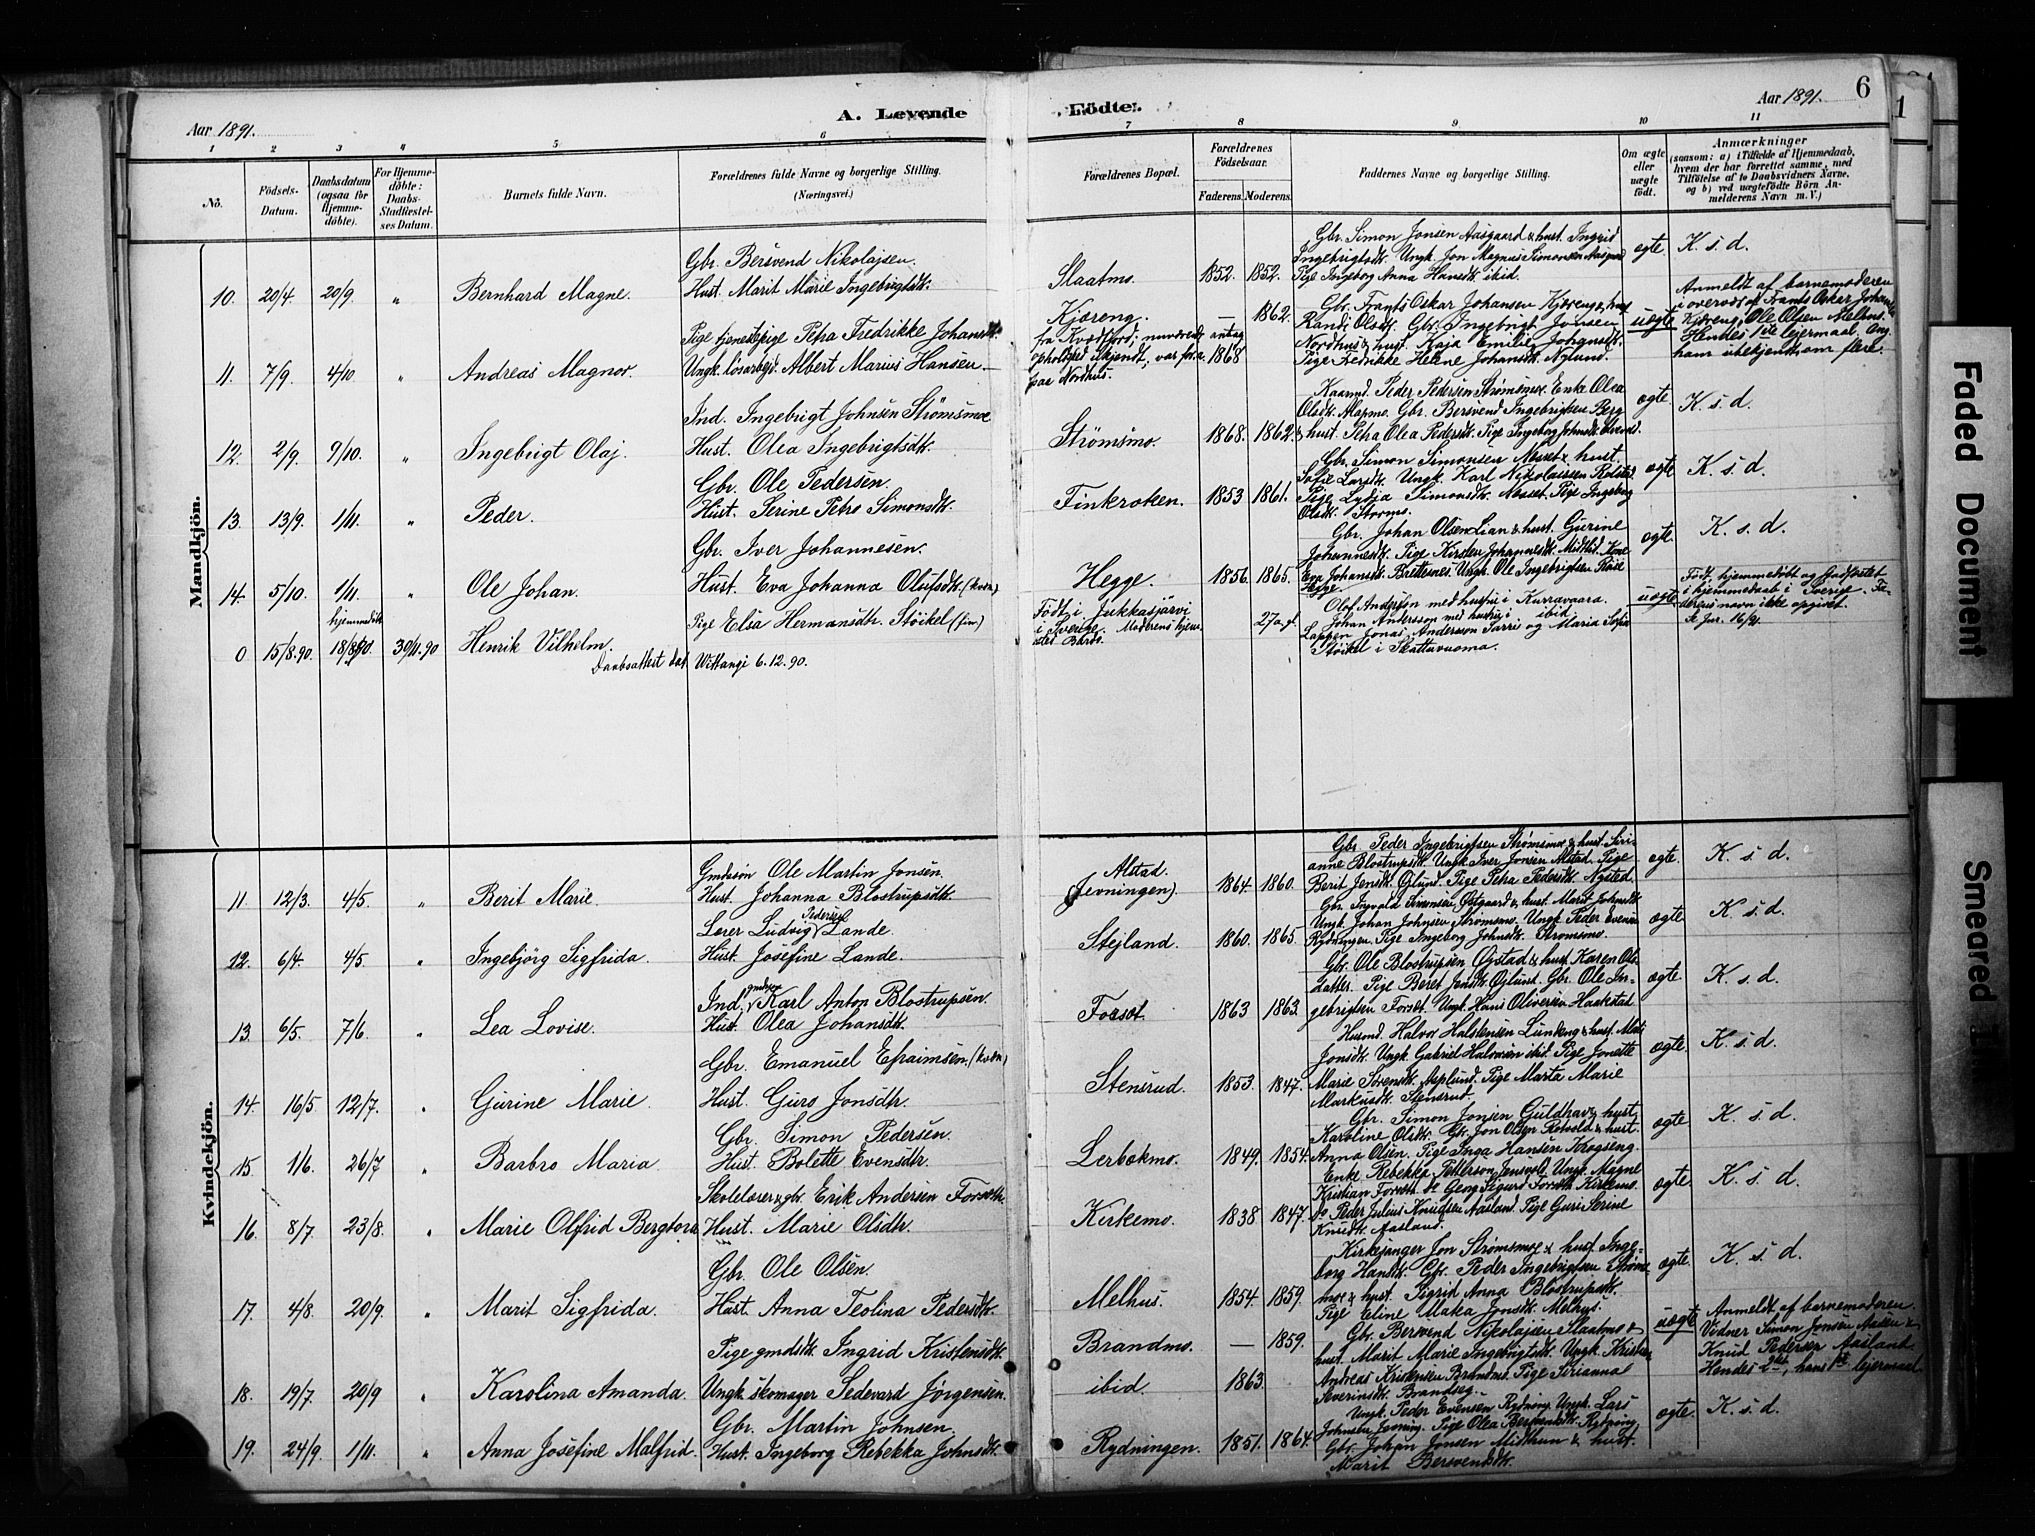 Aar 1891.
A. Levende
Födte.
Aar 1891.
6
1
1 2 3 4 5 6 7 8 9 10 11
No.
Födsels-
Datum.
Daabsdatum
(ogsaa for
Hjemme-
döbte).
For Hjemme-
döbte:
Daabs-
Stadfæstel-
ses Datum.
Barnets fulde Navn.
Forældrenes fulde Navne og borgerlige Stilling.
(Næringsvei.)
Forældrenes Bopæl.
Forældrenes
Födselsaar.
Faderens. Moderens.
Faddernes Navne og borgerlige Stilling.
Om ægte
eller
uægte
födt.
Anmærkninger
(saasom: a) i Tilfælde af Hjemmedaab,
hvem der har forrettet samme, med
Tilföielse af to Daabsvidners Navne,
og b) ved uægtefödte Börn An-
melderens Navn m.V.)
Mandkjön.
10. 20/4 20/9 " Bernhard Magne.
Gbr. Bersvend Nikolajsen.
Hust. Marit Marie Ingebrigtsdtr.
Slaatmo. 1852. 1852.
Gbr. Simon Jonsen Aasgaard & hust. Ingrid
Ingebrigtsdtr. Ungk. Jon Magnus Simonsen Aasgaard
Pige Ingeborg Anna Hansdtr. ibid.
ægte K. s. d.
11. 7/9. 4/10. " Andreas Magnor.
Pige tjenestepige Petra Fredrikke Johansdtr.
Ungk. løsarbejd. Albert Marius Hansen.
Kjæreng. — 1862.
fra Kvædfjord, nuværende antag
opholdsted ukjendt, var før 1868
paa Nordhus.
Gbr. Frants Oskar Johansen Kjæreng & hust.
Randi Olsdtr. Gbr. Ingebrigt Jonsen
Nordhus & hust. Kaja Emilie Johansdtr.
Pige Fredrikke Helene Johansdtr. Nylund.
uægte
Anmeldt af barnemoderen
i overvær af Frants Oskar Johansen
Kjæreng, Ole Olsen Melhus.
Hendes 1ste lejermaal. Ang.
ham ubekjendt om flere.
12. 2/9. 9/10. " Ingebrigt Olaj.
Ind. Ingebrigt Johnsen Strømsmoe
Hust. Olea Ingebrigtsdtr.
Strømsmo. 1868. 1862.
Kaarmd. Peder Pedersen Strømsmo. Enke Olea
Olsdtr. Alapmo. Gbr. Bersvend Ingebrigtsen Berg
& hust. Petra Olea Pedersdtr. Pige Ingeborg Johnsdtr.
ægte K. s. d.
13. 13/9. 1/11. " Peder.
Gbr. Ole Pedersen.
Hust. Serine Petra Simonsdtr.
Finkroken. 1853 1861.
Gbr. Simon Simonsen Nesset & hust.
Sofie Larsdtr. Ungk. Karl Nikolaisen
Pige Lydia Simonsdtr. Nesset. Pige Ingeborg
Olsdtr. Stormo.
ægte K. s. d.
14. 5/10. 1/11. " Ole Johan.
Gbr. Iver Johannesen.
Hust. Eva Johanna Olufsdtr. (kvæn)
Hegge. 1856. 1865.
Gbr. Johan Olsen Lian & hust. Gurine
Johannesdtr. Pige Kirsten Johannesdtr. Midtlid. Kone
Eva Johansdtr. Brettesnes. Ungk. Ole Ingebrigtsen
Hegge.
ægte. K. s. d.
hjemmedøbt
0 15/8.90. 18/8.90. 30/11.90 Henrik Vilhelm.
Daabsattest dat. Wittangi 6.12.90.
Pige Elsa Hermansdtr Stöikel (fin.)
Født i Jukkasjärvi
i Sverige. Moderens hjem-
sted Bardo.
27 a. g.
Olof Andersson med hustru i Kurravaara.
Johan Andersson med hustru ibid.
Lappen Jonas Andersson Sarri og Maria Sofia
Stöikel i Skattuvuoma.
uægte
Født, hjemmedøbt og stadfæstet
i hjemmedaab i Sverige. Fa-
derens navn ikke opgivet.
Kvindekjön.
11. 12/3. 4/5. " Berit Marie.
Gmdssön Ole Martin Jonsen.
Hust. Johanna Blostrupsdtr.
Alstad.
(Jevningen). 1864. 1860.
Gbr. Peder Ingebrigtsen Strømsmo & hust. Siri-
anne Blostrupsdtr. Ungk. Iver Jonsen Alstad. Pige
Berit Jensdtr. Øjlund. Pige Petra Pedersdtr. Nystad.
ægte. K. s. d.
12. 6/4. 4/5. " Ingebjörg Sigfrida.
Lærer Ludvig Pedersen Lande.
Hust. Josefine Lande.
Stejland. 1860. 1865.
Gbr. Ingvald Simonsen Østgaard & hust. Marit Johnsdtr.
Ungk. Johan Johnsen Strømsmo. Ungk. Peder Evensen
Rydningen. Pige Ingeborg Johnsdtr. Strømsmo.
ægte. K. s. d.
13. 6/5. 7/6. " Lea Lovise.
Ind. gmdssøn Karl Anton Blostrupsen.
Hust. Olea Johansdtr.
Forset. 1863 1863.
Gbr. Ole Blostrupsen Øystad & hust. Karen Ols-
datter. Pige Beret Jensdtr. Øjlund. Gbr. Ole In-
gebrigtsen Forset. Ungk. Hans Oliversen Haakstad
ægte. K. s. d.
14. 16/5 12/7. " Gurine Marie.
Gbr. Emanuel Efraimsen. (kvæn)
Hust. Guro Jonsdtr.
Stensrud. 1853. 1847.
Husmd. Halvor Halstensen Lundeng & hust. Mari
Jonsdtr. Ungk. Gabriel Halvorsen ibid. Pige Jonette
Marie Sørensdtr. Asplund. Pige Marta Marie
Markusdtr. Stensrud.
ægte. K. s. d.
15. 1/6. 26/7 " Barbro Maria.
Gbr. Simon Pedersen.
Hust. Bolette Evensdtr.
Lerbækmo. 1849. 1854.
Gbr. Simon Jonsen Guldhav & hust.
Karoline Olsdtr. Gbr. Jon Olsen Rotvold & hust.
Anna Olsen. Pige Inga Hansen Krogseng.
ægte K. s. d.
16. 8/7. 23/8. " Marie Olfrid Bergtora
Skolelærer & gbr. Erik Andersen Forseth
Hust. Marie Olsdtr.
Kirkemo. 1838 1847.
Enke Rebekka Petterson Jensvold. Ungk. Magne
Kristian Forseth. do Georg Sigurd Forseth Kirkemo.
do Peder Julius Knudsen Aasland. Pige Guri Serine
Knudsdtr. Aasland.
ægte K. s. d.
17. 4/8. 20/9. " Marit Sigfrida.
Gbr. Ole Olsen.
Hust. Anna Teolina Pedersdtr.
Melhus. 1854. 1859.
Kirkesanger Jon Strømsmoe & hust. Inge-
borg Hansdtr. Gbr. Peder Ingebrigtsen Strøms-
moe & hust. Sigrid Anna Blostrupsdtr.
Pige Eline Maka Jonsdtr. Melhus.
ægte. K. s. d.
18. 19/7. 20/9 " Karolina Amanda.
Pige gmdsdtr. Ingrid Kristensdtr.
Ungk. skomager Sedevard Jörgensen.
Brandmo. — 1859.
ibid 1863.
Gbr. Bersvend Nikolajsen Slaatmo &
hust. Marit Marie Ingebrigtsdtr. Ungk. Kristen
Andreas Kristensen Brandmo. Pige Sirianna
Severinsdtr. Brandseg.
uægte
Anmeldt af barnemoderen.
Vidner Simon Jonsen Aasen &
Knud Pedersen Aasland.
Hendes 2det, hans 1ste lejermaal.
19. 24/9. 1/11. " Anna Josefine Malfrid.
Gbr. Martin Johnsen.
Hust. Ingeborg Rebekka Johnsdtr.
Rydningen. 1851. 1864.
Ungk. Peder Evensen Rydning. Ungk. Lars
Johnsen Jevning. Pige Olea Bersvendsdtr. Rydning.
Gbr. Johan Jonsen Midthun & hust.
Marit Bersvendsdtr.
ægte. K. s. d.
Faded Document
Smeared